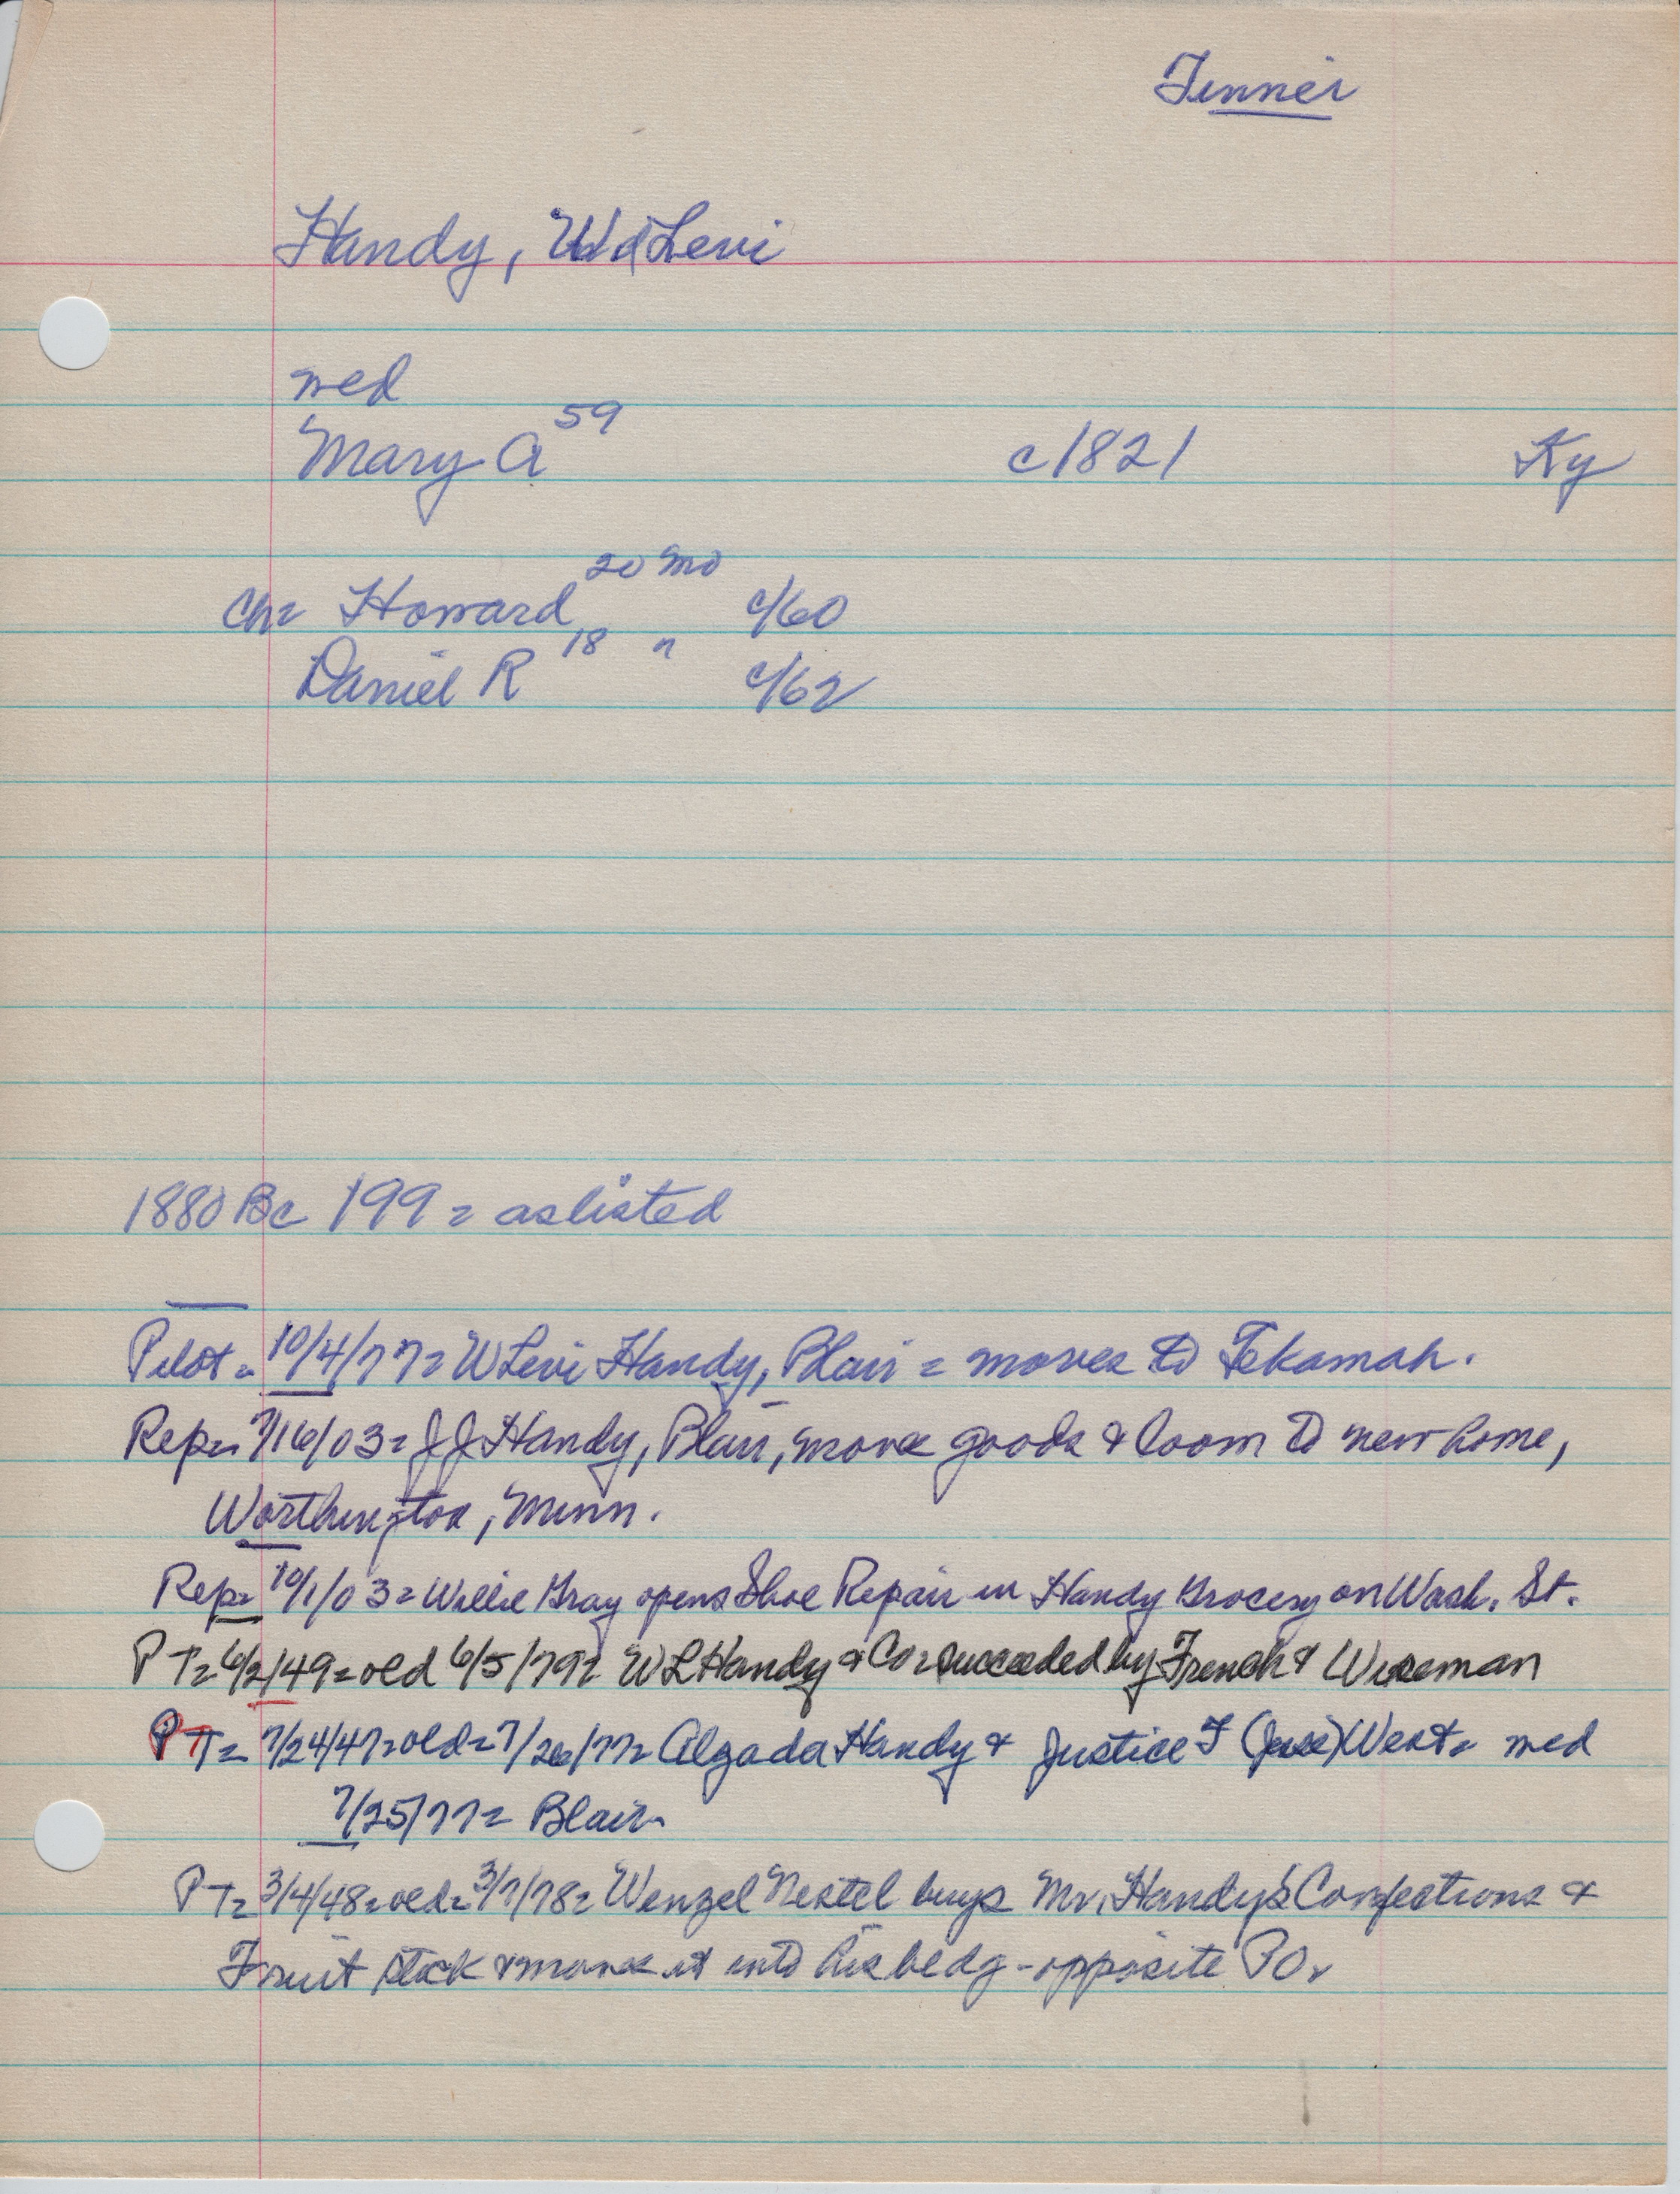 Tinner
Handy, Wd Levi
med
Mary A 59 c1821 Ky
Ch= Howard 20 Mo c/60
Daniel R 18 " c/62
1880 Bc 199 = as listed
Pilot = 10/4/77 = W Levi Handy, Blair = moves to Tekamah.
Rep = 7/16/03 = J J Handy, Blair, move goods & loom to new home,
Worthington, Minn.
Rep= 10/1/03 = Willie Gray opens Shoe Repair in Handy Grocery on Wash. St.
PT= 6/2/49 = old 6/5/79 = W L Handy & Co = succeeded by French & Wiseman
PT= 7/24/47 = old = 7/26/77 = Algada Handy & Justice F West = med
7/25/77 = Blair
PT= 3/4/48 = old = 3/7/78 = Wenzel Nestel buys Mr. Handy's Confections &
Fruit stock & moves it into his bldg - opposite PO.